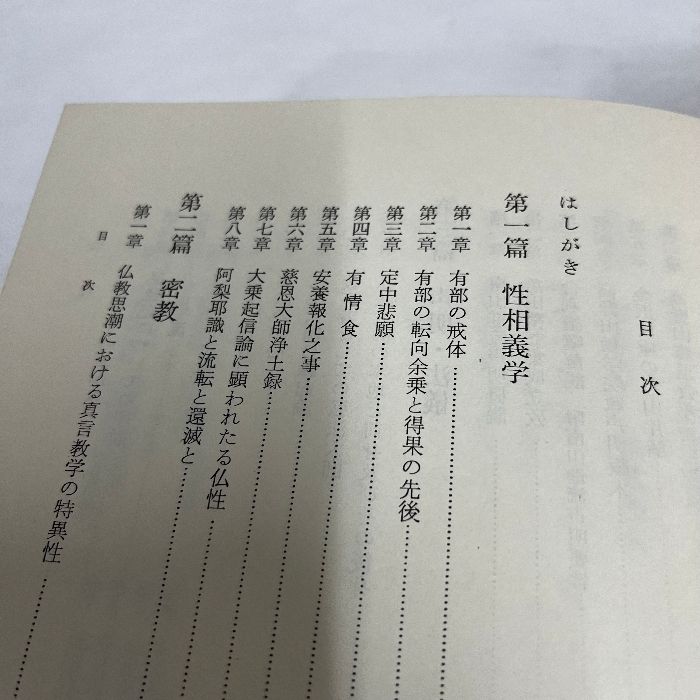 目次
はしがき
第一篇 性相義学
第一章 有部の戒体
第二章 有部の転向余乗と得果の先後
第三章 定中悲願
第四章 有情食
第五章 安養報化之事
第六章 慈恩大師浄土録
第七章 大乗起信論に顕われたる仏性
第八章 阿梨耶識と流転と還滅と
第二篇 密教
第一章 仏教思潮における真言教学の特異性
目次